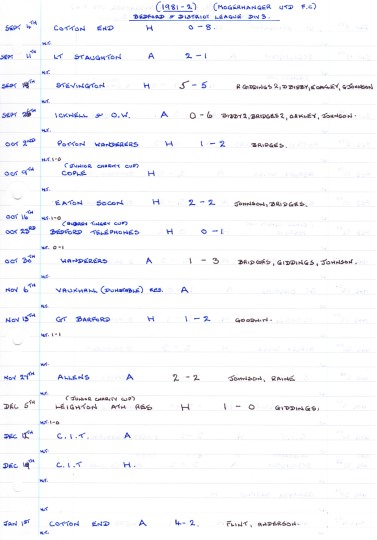 (1981-2) (MOGERHANGER UTD F.C)
BEDFORD & DISTRICT LEAGUE DIV 3.
SEPT 4TH COTTON END H 0-8.
H.T.
SEPT 11TH LT STAUGHTON A 2-1
H.T.
SEPT 19TH STEVINGTON H 5-5 R GIDDINGS 2, D DIBBY, E OAKLEY, G JOHNSON
H.T.
SEPT 26TH ICKNELL & O.W. A 0-6 DIBBY 2, BRIDGES 2, OAKLEY, JOHNSON.
H.T.
OCT 2ND POTTON WANDERERS H 1-2 BRIDGES.
H.T. 1-0
(JUNIOR CHARITY CUP)
OCT 9TH COPLE H
H.T.
EATON SOCON H 2-2 JOHNSON, BRIDGES.
OCT 16TH H.T. 1-0
OCT 23RD BEDFORD TELEPHONES H 0-1
H.T. 0-1
OCT 30TH WANDERERS A 1-3 BRIDGES, GIDDINGS, JOHNSON.
H.T.
NOV 6TH VAUXHALL (DUNSTABLE) RES. A
H.T.
NOV 13TH GT BARFORD H 1-2 GOODWIN.
H.T. 1-1
NOV 27TH ALLENS A 2-2 JOHNSON, RAINE
H.T.
(JUNIOR CHARITY CUP)
DEC 5TH LEIGHTON ATH RES H 1-0 GIDDINGS.
H.T. 1-0
DEC 12TH C.I.T. A
H.T.
DEC 19TH C.I.T H.
H.T.
JAN 1ST COTTON END A 4-2. FLINT, ANDERSON.
H.T.